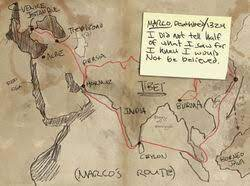 VENICE
MARCO, DEATHBED/1324
I DID NOT TELL HALF
OF WHAT I SAW FOR
I KNEW I WOULD
NOT BE BELIEVED.
ACRE
PERSIA
HORMUZ
TIBET
INDIA
BURMA
CEYLON
BORNEO
(MARCO'S ROUTE)